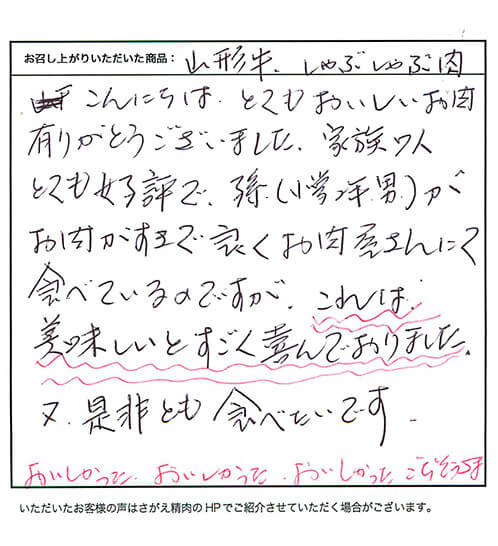 お召し上がりいただいた商品： 山形牛、しゃぶしゃぶ肉
こんにちは、とてもおいしいお肉
有りがとうございました、家族7人
とても好評で、孫(小学2年.男)が
お肉がすきで良くお肉屋さんにて
食べているのですが、これは、
美味しいとすごく喜んでおりました。
又、是非とも食べたいです.
おいしかった、おいしかった、おいしかった ごちそうさま
いただいたお客様の声はさがえ精肉のHPでご紹介させていただく場合がございます。